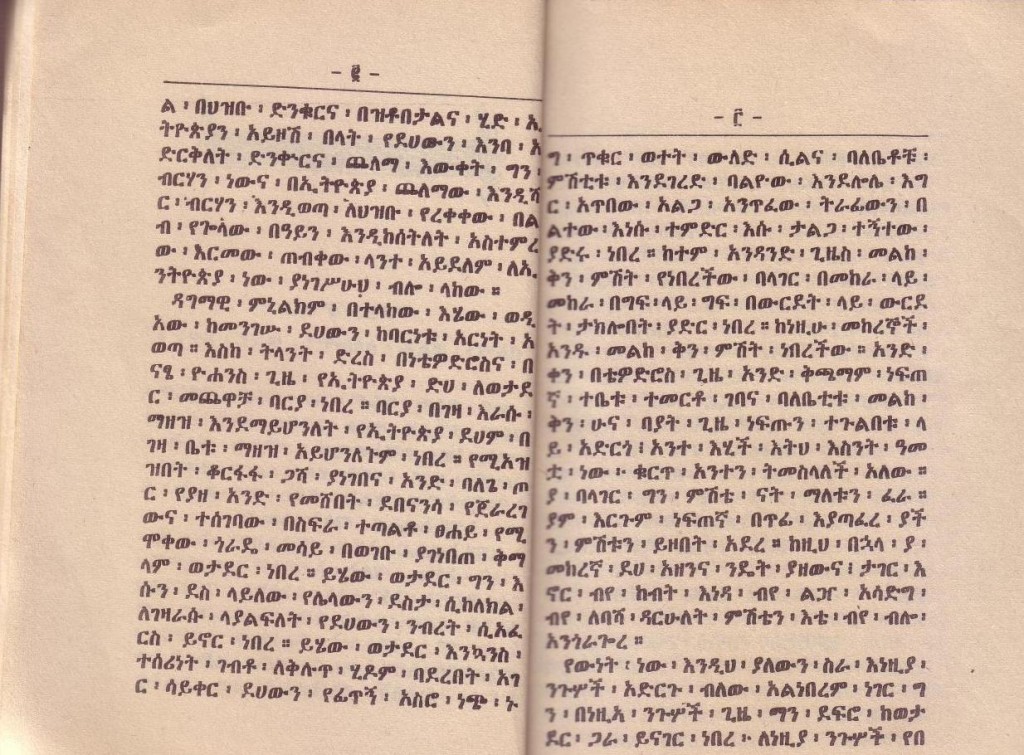 - ፪ -
ል ፡ በህዝቡ ፡ ድንቁርና ፡ በዝቶበታልና ፡ ሂድ ፡ ኢ
ትዮጵያን ፡ አይዞሽ ፡ በላት ፡ የደሀውን ፡ እንባ ፡ አ
ድርቅለት ፡ ድንቍርና ፡ ጨለማ ፡ እውቀት ፡ ግን ፡
ብርሃን ፡ ነውና ፡ በኢትዮጵያ ፡ ጨለማው ፡ እንዲሻ
ር ፡ ብርሃን ፡ እንዲወጣ ፡ ለህዝቡ ፡ የረቀቀው ፡ በል
ብ ፡ የጐላው ፡ በዓይን ፡ እንዲከሰትለት ፡ አስተምረ
ው ፡ እርመው ፡ ጠብቀው ፡ ላንተ ፡ አይደለም ፡ ለኢ
ንትዮጵያ ፡ ነው ፡ ያነገሥሁህ ፡ ብሎ ፡ ላከው ።
ዳግማዊ ፡ ምኒልክም ፡ በተላከው ፡ እሄው ፡ ወዲ
አው ፡ ከመንገሡ ፡ ደሀውን ፡ ከባርነቱ ፡ አርነት ፡ አ
ወጣ ። እስከ ፡ ትላንት ፡ ድረስ ፡ በነቴዎድሮስና ፡ በ
ናፄ ፡ ዮሐንስ ፡ ጊዜ ፡ የኢትዮጵያ ፡ ድሀ ፡ ለወታደ
ር ፡ መጨዋቻ ፡ ባርያ ፡ ነበረ ። ባርያ ፡ በገዛ ፡ እራሱ ፡
ማዘዝ ፡ እንደማይሆንለት ፡ የኢትዮጵያ ፡ ደሀም ፡ በ
ገዛ ፡ ቤቱ ፡ ማዘዝ ፡ አይሆንለትም ፡ ነበረ ። የሚአዝ
ዝበት ፡ ቆርፋፋ ፡ ጋሻ ፡ ያነገበና ፡ አንድ ፡ ባለጌ ፡ ጦ
ር ፡ የያዘ ፡ አንድ ፡ የመሸበት ፡ ደበናንሳ ፡ የጀራረገ
ውና ፡ ተሰገባው ፡ በስፍራ ፡ ተጣልቶ ፡ ፀሐይ ፡ የሚ
ሞቀው ፡ ጎራዴ ፡ መሳይ ፡ በወገቡ ፡ ያገነበጠ ፡ ቅማ
ላም ፡ ወታደር ፡ ነበረ ። ይሄው ፡ ወታደር ፡ ግን ፡ እ
ሱን ፡ ደስ ፡ ላይለው ፡ የሌላውን ፡ ደስታ ፡ ሲከለክል ፡
ለገዛራሱ ፡ ላያልፍለት ፡ የደሀውን ፡ ንብረት ፡ ሲአፈ
ርስ ፡ ይኖር ፡ ነበረ ። ይሄው ፡ ወታደር ፡ እንኳንስ ፡
ተሰሪነት ፡ ገብቶ ፡ ለቅሉጥ ፡ ሂዶም ፡ በደረበት ፡ አገ
ር ፡ ሳይቀር ፡ ደሀውን ፡ የፊጥኝ ፡ አስሮ ፡ ነጭ ፡ ኑ
- ፫ -
ግ ፡ ጥቁር ፡ ወተት ፡ ውለድ ፡ ሲልና ፡ ባለቤቶቹ ፡
ምሽቲቱ ፡ እንደገረድ ፡ ባልዮው ፡ እንደሎሌ ፡ እግ
ር ፡ አጥበው ፡ አልጋ ፡ አንጥፈው ፡ ትራፊውን ፡ በ
ልተው ፡ እነሱ ፡ ተምድር ፡ እሱ ፡ ታልጋ ፡ ተኝተው ፡
ያድሩ ፡ ነበረ ። ከተም ፡ አንዳንድ ፡ ጊዜስ ፡ መልከ ፡
ቅን ፡ ምሽት ፡ የነበረችው ፡ ባላገር ፡ በመከራ ፡ ላይ ፡
መከራ ፡ በግፍ ፡ ላይ ፡ ግፍ ፡ በውርደት ፡ ላይ ፡ ውርደ
ት ፡ ታክሎበት ፡ ያድር ፡ ነበረ ። ከነዚሁ ፡ መከረኞች ፡
አንዱ ፡ መልከ ፡ ቅን ፡ ምሽት ፡ ነበረችው ። አንድ ፡
ቀን ፡ በቴዎድሮስ ፡ ጊዜ ፡ አንድ ፡ ቅጫማም ፡ ነፍጠ
ኛ ፡ ተቤቱ ፡ ተመርቶ ፡ ገባና ፡ ባለቤቲቱ ፡ መልከ ፡
ቅን ፡ ሁና ፡ ባያት ፡ ጊዜ ፡ ነፍጡን ፡ ተጉልበቱ ፡ ላ
ይ ፡ አድርጎ ፤ አንተ ፡ እሂች ፡ እትህ ፡ እስንት ፡ ዓመ
ቷ ፡ ነው ፡ ቁርጥ ፡ አንተን ፡ ትመስላለች ፡ አለው ።
ያ ፡ ባላገር ፡ ግን ፡ ምሽቴ ፡ ናት ፡ ማለቱን ፡ ፈራ ።
ያም ፡ እርጉም ፡ ነፍጠኛ ፡ በጥፊ ፡ እያጣፈረ ፡ ያች
ን ፡ ምሽቱን ፡ ይዞበት ፡ አደረ ። ከዚህ ፡ በኋላ ፡ ያ ፡
መከረኛ ፡ ደሀ ፡ አዘንና ፡ ንዴት ፡ ያዘውና ፤ ታገር ፡ እ
ኖር ፡ ብየ ፡ ከብት ፡ እነዳ ፡ ብየ ፡ ልጀ ፡ አሳድግ ፡
ብየ ፡ ለባሻ ፡ ዳርሁለት ፡ ምሽቴን ፡ እቴ ፡ ብየ ፡ ብሎ ፡
አንጎራጐረ ።
የውነት ፡ ነው ፡ እንዲህ ፡ ያለውን ፡ ስራ ፡ እነዚያ ፡
ንጉሦች ፡ አድርጉ ፡ ብለው ፡ አልነበረም ፡ ነገር ፡ ግ
ን ፡ በነዚአ ፡ ንጉሦች ፡ ጊዜ ፡ ማን ፡ ደፍሮ ፡ ከወታ
ደር ፡ ጋራ ፡ ይናገር ፡ ነበረ ፡ ለነዚያ ፡ ንጉሦች ፡ የበ